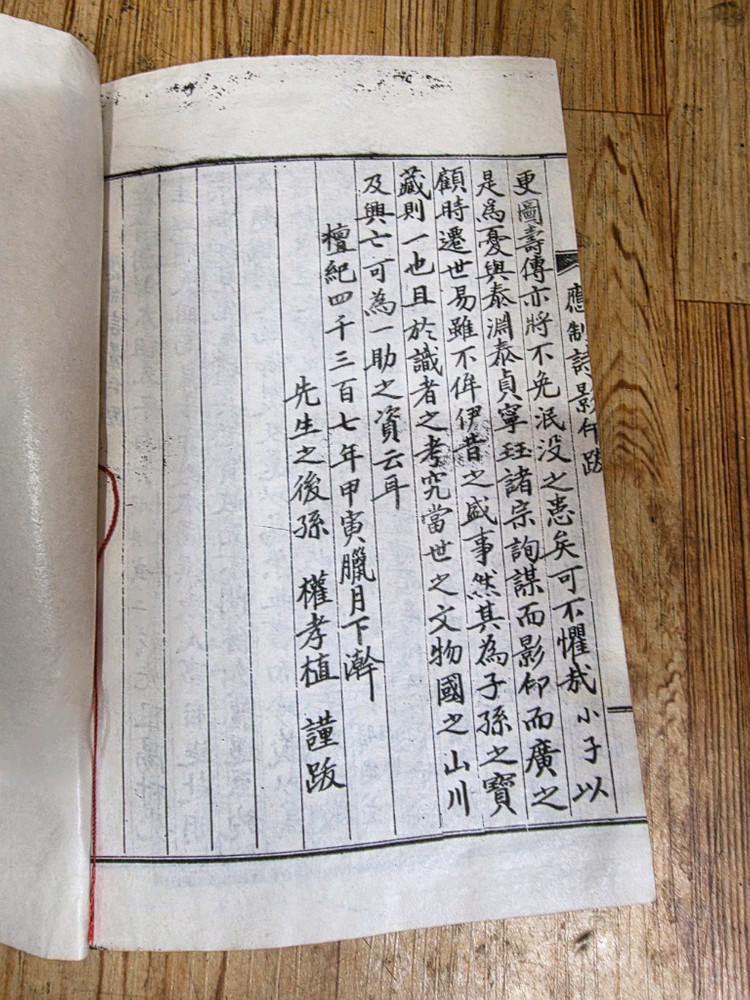 應制詩影印跋
更圖壽傳亦將不免泯没之患矣可不懼哉小子以
是爲憂與泰淵泰貞寧珏諸宗詢謀而影印而廣之
顧時遷世易雖不侔伊昔之盛事然其為子孫之寶
藏則一也且於識者之考究當世之文物國之山川
及興亡可為一助之資云耳
檀紀四千三百七年甲寅臘月下澣
先生之後孫 權孝植 謹跋